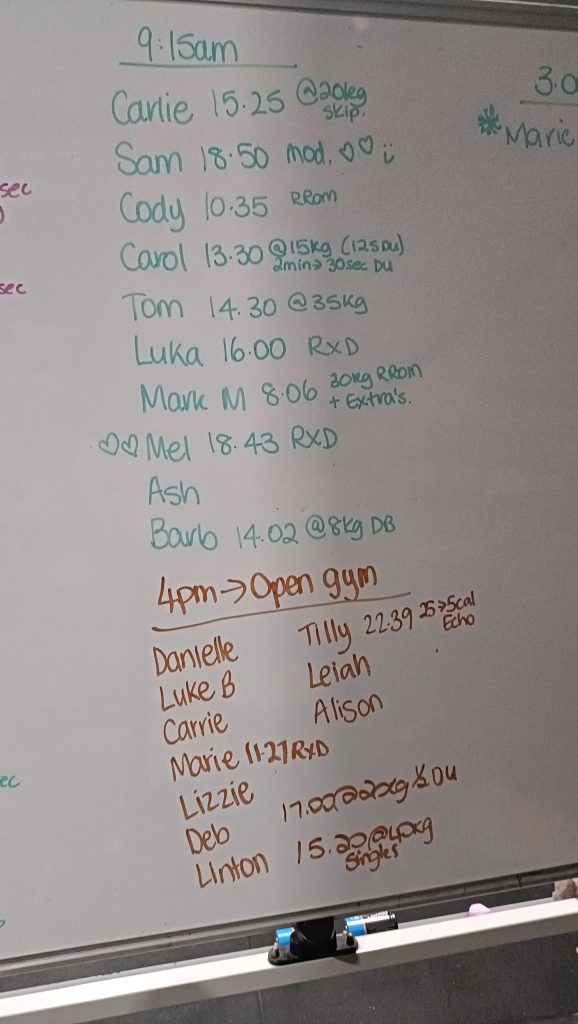 9:15am
Carlie 15.25 @20kg
skip.
Sam 18.50 mod. ♡♡
Cody 10.35 RRom
Carol 13.30 @15kg (125DU)
2min→30sec DU
Tom 14.30 @35kg
Luka 16.00 RXD
Mark M 8.06 30kg RRom
+ Extra's.
♡♡ Mel 18.43 RXD
Ash
Barb 14.02 @8kg DB
4pm→Open gym
Danielle Tilly 22.39 25→5cal
Echo
Luke B Leiah
Carrie Alison
Marie 11.27 RXD
Lizzie
Deb 17.00@20kg ½DU
Linton 15.20@40kg
Singles
3.0
Marie
sec
sec
ec